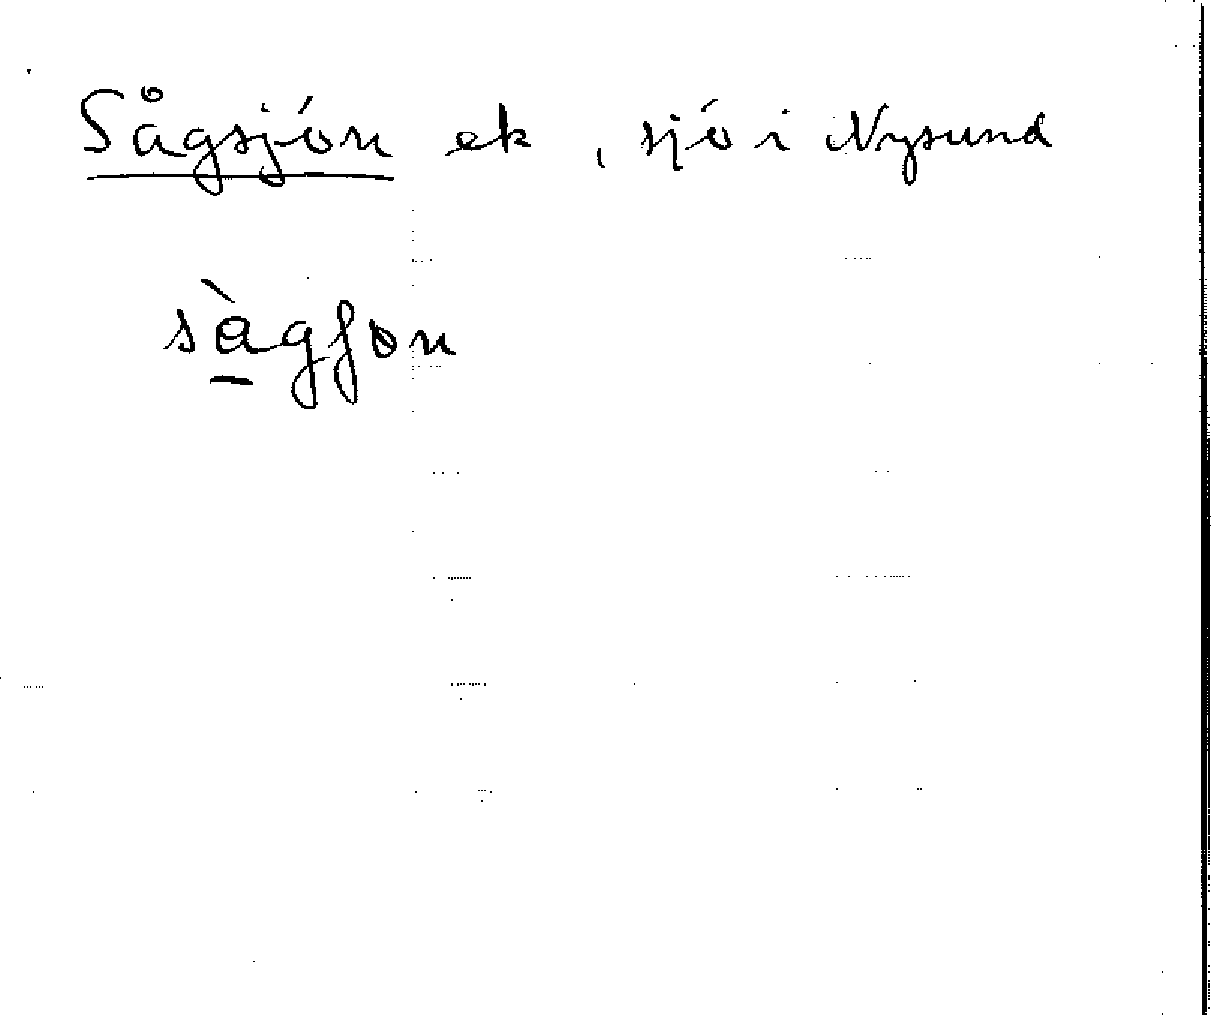 Sågsjön ek , sjö i Nysund
sàgʃøn